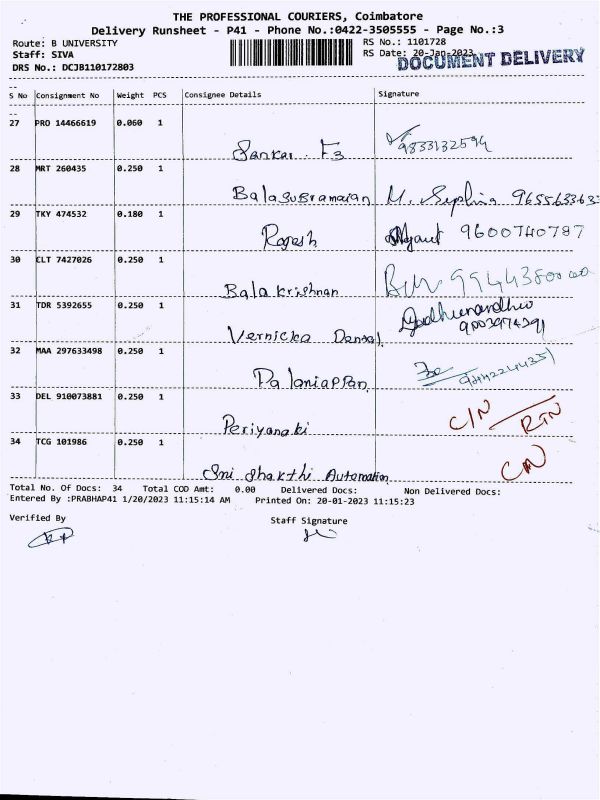 THE PROFESSIONAL COURIERS, Coimbatore
Delivery Runsheet - P41 - Phone No.:0422-3505555 - Page No.:3
Route: B UNIVERSITY RS No.: 1101728
Staff: SIVA RS Date: 20-Jan-2023
DOCUMENT DELIVERY
DRS No.: DCJB110172803
S No Consignment No Weight PCS Consignee Details Signature
27 PRO 14466619 0.060 1
Sankar. F3 9833132594
28 MRT 260435 0.250 1
Balasubramaian 965563363
29 TKY 474532 0.180 1
Rajesh 9600740787
30 CLT 7427026 0.250 1
Bala krishnan
31 TDR 5392655 0.250 1
Vernicka Dansal
32 MAA 297633498 0.250 1
Palaniappan
33 DEL 910073881 0.250 1
Periyanaki C/N RTN
34 TCG 101986 0.250 1
Sri Shakthi Automation
Total No. Of Docs: 34 Total COD Amt: 0.00 Delivered Docs: Non Delivered Docs:
Entered By :PRABHAP41 1/20/2023 11:15:14 AM Printed On: 20-01-2023 11:15:23
Verified By Staff Signature